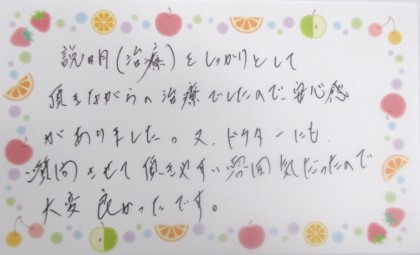 説明(治療)をしっかりとして
頂きながらの治療でしたので、安心感
がありました。又、ドクターにも
質問させて頂きやすい雰囲気だったので
大変良かったです。